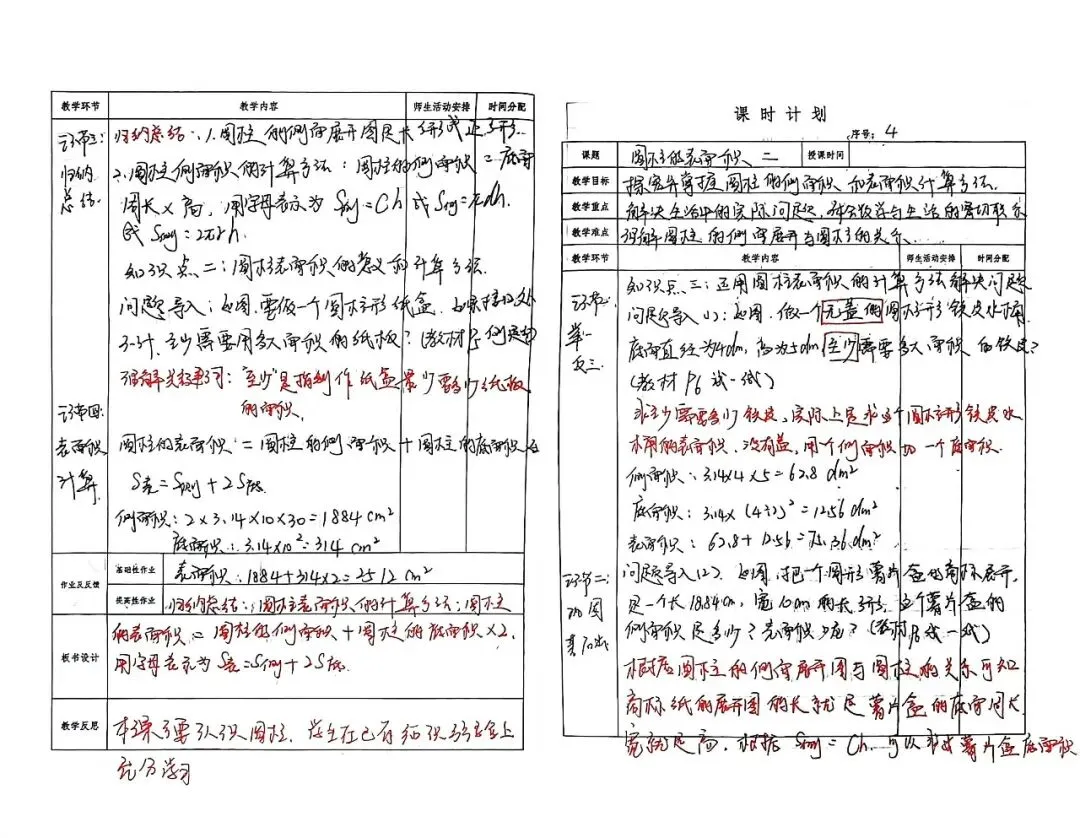 教学环节 教学内容 师生活动安排 时间分配
环节三: 归纳总结: 1.圆柱的侧面展开图是长方形或正方形.
归纳 2.圆柱侧面积的计算方法:圆柱的侧面积=底面
总结. 周长×高,用字母表示为S侧=Ch或S侧=πdh.
或S侧=2πrh.
知识点二:圆柱表面积的意义和计算方法.
问题导入:如图,要做一个圆柱形纸盒,如果接口处
不计,至少需要用多大面积的纸板?(教材P5例题)
理解关键词:"至少"是指制作纸盒最少要多少纸板
的面积.
环节四:
表面积 圆柱的表面积=圆柱的侧面积+圆柱的底面积
计算. S表=S侧+2S底.
侧面积:2×3.14×10×30=1884cm²
底面积:3.14×10²=314cm²
作业及反馈 基础性作业 表面积:1884+314×2=2512cm²
提高性作业 归纳总结:圆柱表面积的计算方法:圆柱
板书设计 的表面积=圆柱的侧面积+圆柱的底面积×2,
用字母表示为S表=S侧+2S底.
教学反思 本课主要认识圆柱,学生在已有知识
充分学习
课时计划
序号: 4
课题 圆柱的表面积二 授课时间
教学目标 探究并掌握圆柱的侧面积和表面积计算方法.
教学重点 解决生活中的实际问题,体会数学与生活的密切联系
教学难点 理解圆柱的侧面展开与圆柱的关系.
教学环节 教学内容 师生活动安排 时间分配
环节一: 知识点三:运用圆柱表面积的计算方法解决问题
举一 问题导入(1):如图,做一个无盖的圆柱形铁皮水桶,
反三. 底面直径为4dm,高为5dm,至少需要多大面积的铁皮?
(教材P6试一试)
求至少需要多少铁皮,实际上是求这个圆柱形铁皮水
桶的表面积,没有盖,用一个侧面积加一个底面积.
侧面积:3.14×4×5=62.8dm²
底面积:3.14×(4÷2)²=12.56dm²
表面积:62.8+12.56=75.36dm²
环节二: 问题导入(2):如图,把一个圆形薯片盒的商标展开,
巩固 是一个长18.84cm,宽10cm的长方形,这个薯片盒的
侧面积是多少?表面积呢?(教材P6试一试)
根据圆柱的侧面展开图与圆柱的关系可知
商标纸的展开图的长就是薯片盒的底面周长
宽就是高,根据S侧=Ch,可以求出薯片盒底面积